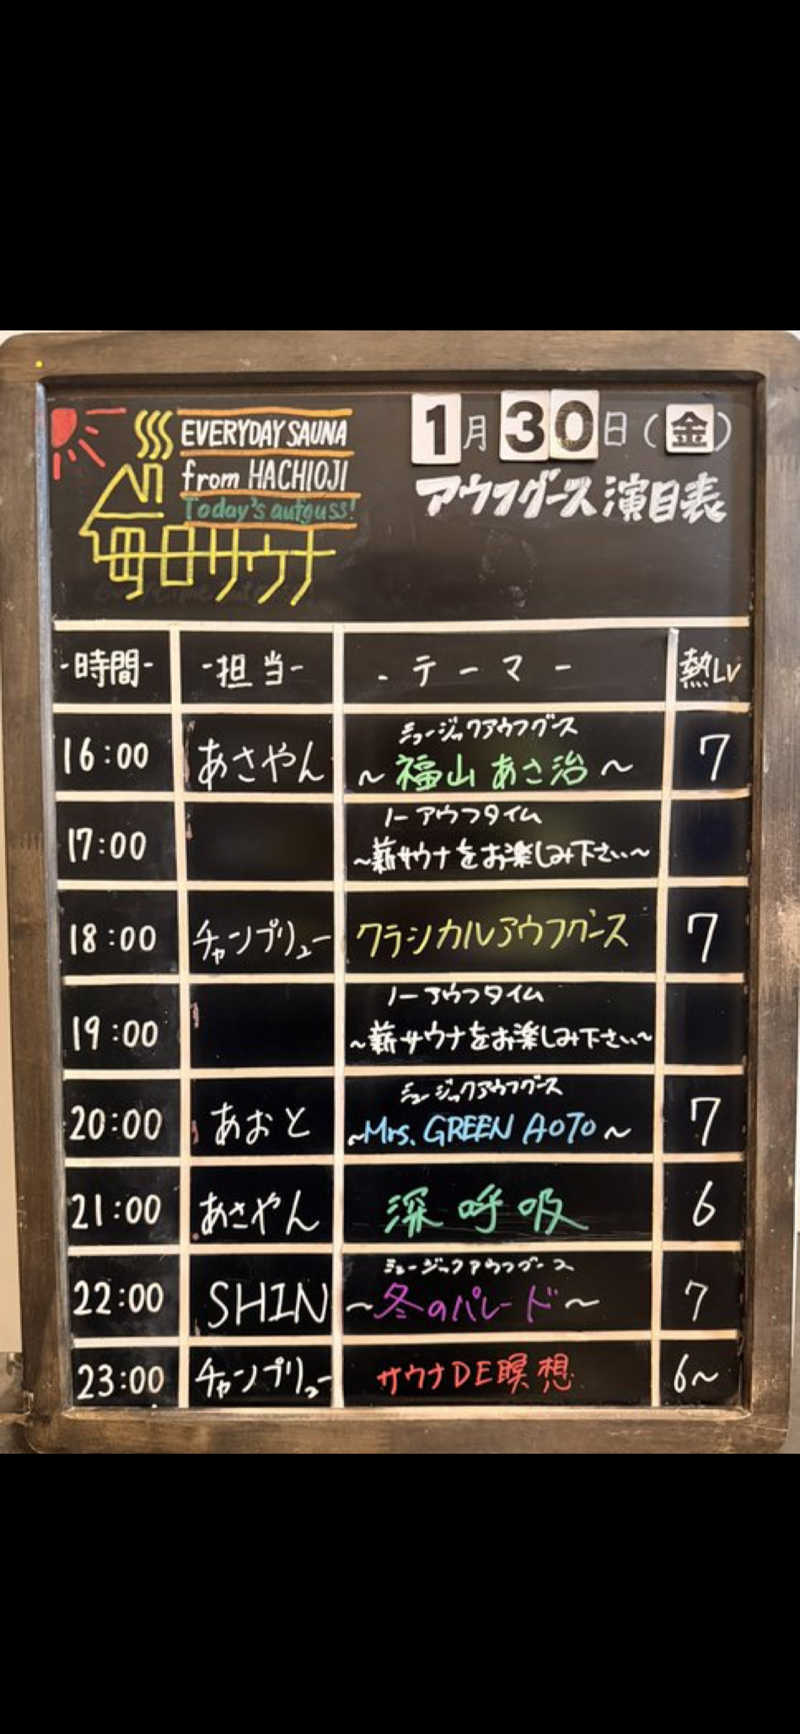 EVERYDAY SAUNA
from HACHIOJI
Today's aufguss!
毎日サウナ
1月30日(金)
アウフグース演目表
-時間- -担当- -テーマ- 熱Lv
ミュージックアウフグース
16:00 あさやん ~福山あさ治~ 7
ノーアウフタイム
17:00 ~薪サウナをお楽しみ下さい~
18:00 チャンプリュー クラシカルアウフグース 7
ノーアウフタイム
19:00 ~薪サウナをお楽しみ下さい~
ミュージックアウフグース
20:00 あおと ~Mrs. GREEN AOTO~ 7
21:00 あさやん 深呼吸 6
ミュージックアウフグース
22:00 SHIN ~冬のパレード~ 7
23:00 チャンプリュー サウナDE瞑想 6~